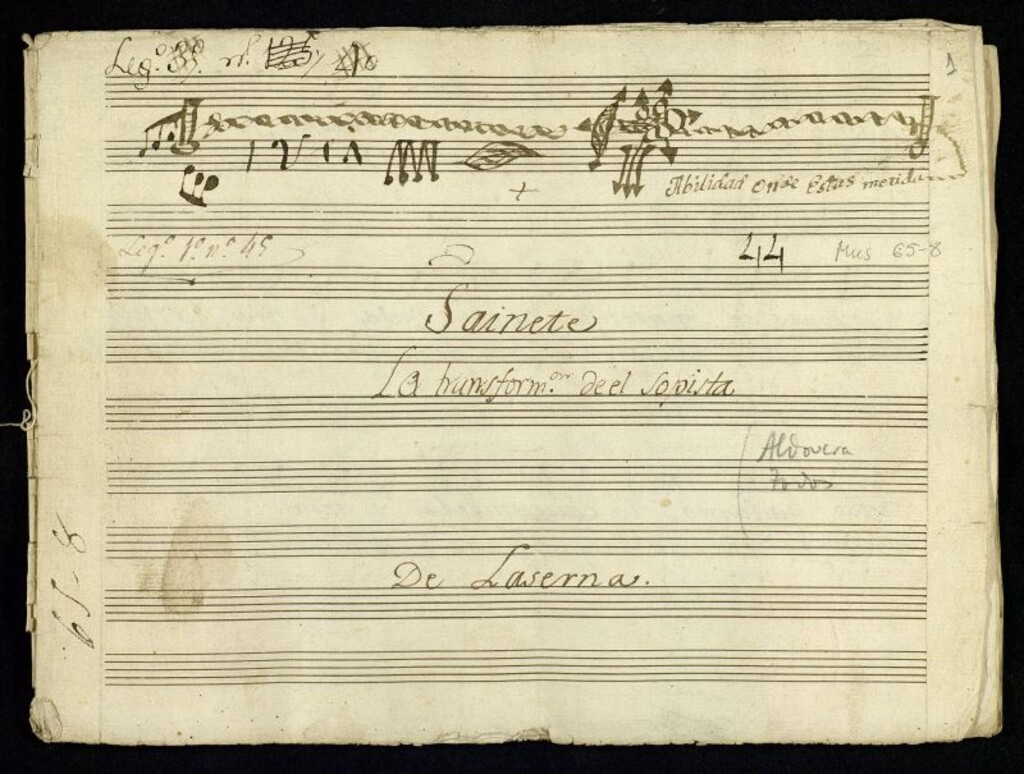 Leg.º
1
Abilidad Onde Estas metida
Leg.º 1.º n.º 45
44 Mus 65-8
Sainete
La transform.on de el Sopista
Aldovera
todos
De Laserna.
65-8